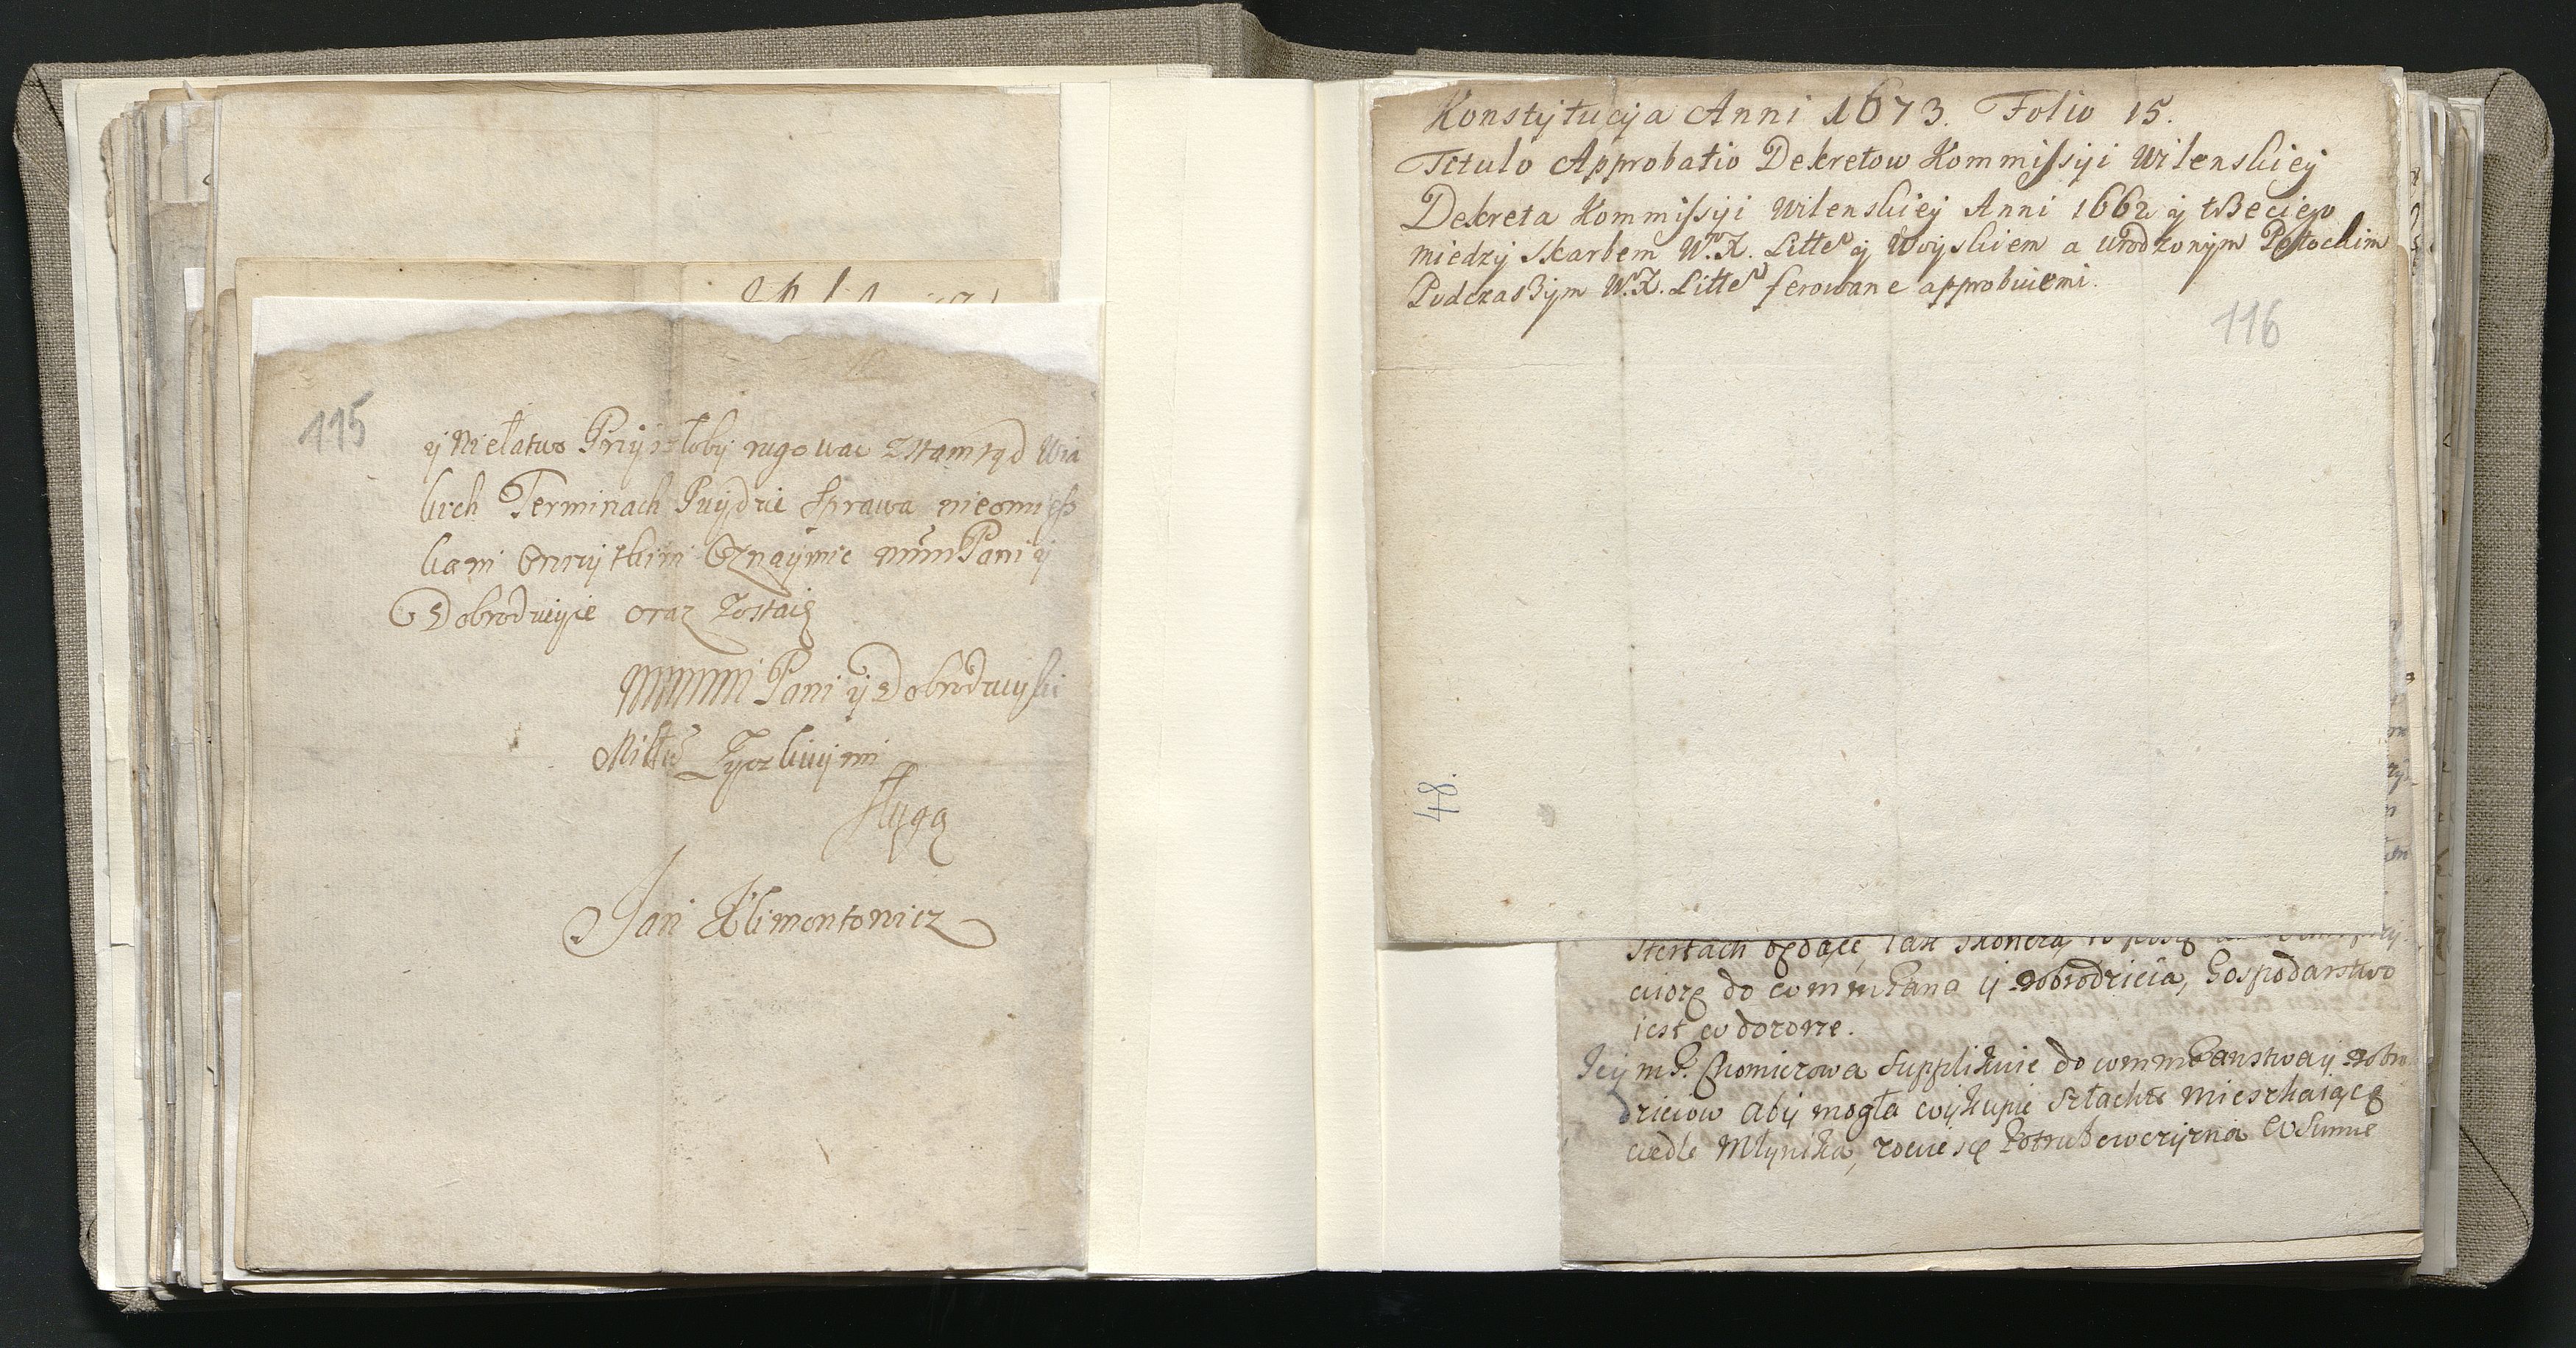 115
y Niełatwo Przyszłoby rugowac Ztamtąd Wia
kich Terminach Puydzie Sprawa nieomiesz
kam Oznaymic Pani y
Dobrodzieyce oraz Zostaię
Pani y Dobrodzieyki
Zyczliwym
sługą
Jan Klimontowicz
Konstytucyja Anni 1673. Folio 15.
Titulo Approbatio Dekretow Kommissyi Wilenskiey
Dekreta Kommissyi Wilenskiey Anni 1662 y trzeciego
miedzy Skarbem W.X. Litte° y Woyskiem a urodzonym Połłockim
Podczaszym W.X. Litte° ferowane approbuiemi.
116
48.
stertach będące, iak skonczą
ciorę do Pana y Dobrodzieia, Gospodarstwo
iest w dozorze.
Jey mP. Chomiczowa Supplikuie do Panstwa y Dobro
dzieiow aby mogła wykupic Szlachte mieszkaiącą
wedle Młynika, zowie się w Sumie